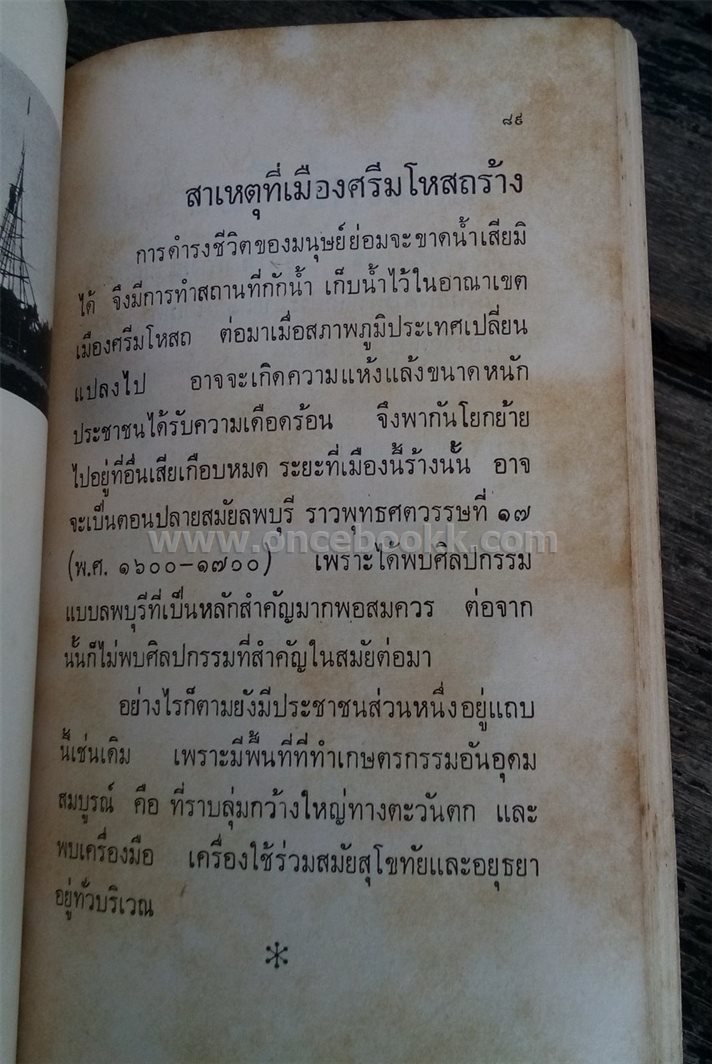 ๘๙
สาเหตุที่เมืองศรีมโหสถร้าง
การดำรงชีวิตของมนุษย์ย่อมจะขาดน้ำเสียมิ
ได้ จึงมีการทำสถานที่กักน้ำ เก็บน้ำไว้ในอาณาเขต
เมืองศรีมโหสถ ต่อมาเมื่อสภาพภูมิประเทศเปลี่ยน
แปลงไป อาจจะเกิดความแห้งแล้งขนาดหนัก
ประชาชนได้รับความเดือดร้อน จึงพากันโยกย้าย
ไปอยู่ที่อื่นเสียเกือบหมด ระยะที่เมืองนี้ร้างนั้น อาจ
จะเป็นตอนปลายสมัยลพบุรี ราวพุทธศตวรรษที่ ๑๗
www.oncebookk.com
(พ.ศ. ๑๖๐๐–๑๗๐๐) เพราะได้พบศิลปกรรม
แบบลพบุรีที่เป็นหลักสำคัญมากพอสมควร ต่อจาก
นั้นก็ไม่พบศิลปกรรมที่สำคัญในสมัยต่อมา
อย่างไรก็ตามยังมีประชาชนส่วนหนึ่งอยู่แถบ
นี้เช่นเดิม เพราะมีพื้นที่ที่ทำเกษตรกรรมอันอุดม
สมบูรณ์ คือ ที่ราบลุ่มกว้างใหญ่ทางตะวันตก และ
พบเครื่องมือ เครื่องใช้ร่วมสมัยสุโขทัยและอยุธยา
อยู่ทั่วบริเวณ